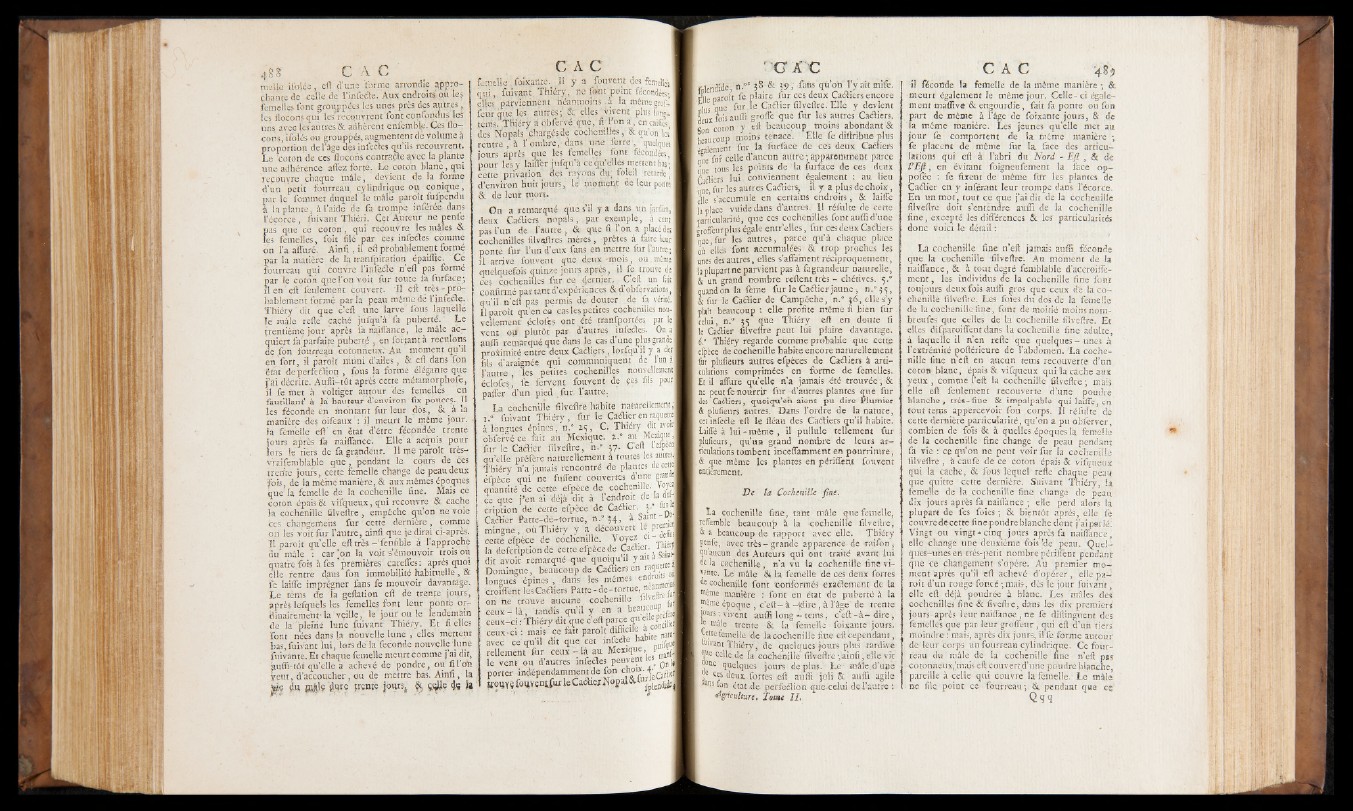 488 C A C
melle isolée, est d'une forme arrondie appro-
chante de celle de l'insecte. Aux endroits où les
femelles sont grouppées les unes près des autres,
les flocons qui les recouvrent sont confondus les
uns avec les autres & adhèrent ensemble. Ces flo-
cons, isolés ou grouppés, augmentent de volume à
proportion de l'âge des insectes qu'ils recouvrent.
Le coton de ces flocons contracte avec la plante
une adhérence assez forte. Le coton blanc, qui
recouvre chaque mâle, devient de la forme
d'un petit fourreau cylindrique ou conique,
par le sommet duquel le mâle paroît suspendu
à la plante, à l'aide de sa trompe insérée dans
l'écorce, suivant Thiéri. Cet Auteur ne pense
pas que ce coton, qui recouvre les mâles &
les femelles, soit filé par ces insectes comme
on l'a assuré. Ainsi, il est probablement formé
par la matière de la transpiration épaissie. Ce
fourreau qui couvre l'insecte n'est pas formé
par le coton que l'on voit sur toute sa surface;
il en est seulement couvert. Il est très-pro-
bablement formé par la peau même de l'insecte.
Thiéry dit que c'est une larve sous laquelle
le mâle reste caché jusqu'à sa puberté. Le
trentième jour après sa naissance, le mâle ac-
quiert sa parfaite puberté, en sortant à reculons
de son fourreau cotonneux. Au moment qu'il
en sort, il paroît muni d'ailes, & est dans son
état de perfection, sous la forme élégante que
j'ai décrite. Aussi-tôt après cette métamorphose,
il se met à voltiger autour des femelles en
sautillant à la hauteur d'environ six pouces. Il
les féconde en montant sur leur dos, & à la
manière des oiseaux : il meurt le même jour.
la femelle est en état d'être fécondée trente
jours après sa naissance. Elle a acquis pour
lors le tiers de sa grandeur. Il me paroît très-
vraisemblable que, pendant le cours de ces
trente jours, cette femelle change de peau deux
fois, de la même manière, & aux mêmes époques
que la femelle de la cochenille fine. Mais ce
coton épais & visqueux, qui recouvre & cache
la cochenille silvestre, empêche qu'on ne voie
ces changemens sur cette dernière, comme
on les voit sur l'autre, ainsi que je dirai ci-après.
Il paroît qu'elle est très-sensible à l'approche
du mâle : car on la voit s'émouvoir trois ou
quatre fois à ses premières caresses : après quoi
elle rentre dans son immobilité habituelle, &
se laisse imprégner sans se mouvoir davantage.
Le tems de la gestation est de trente jours,
après lesquels les femelles font leur ponte or-
dinairement la veille, le jour ou le lendemain
de la pleine lune suivant Thiéry. Et si elles
sont nées dans la nouvelle lune, elles mettent
bas, suivant lui, lors de la seconde nouvelle lune
suivante. Et chaque femelle meurt comme j'ai dit,
aussi-tôt qu'elle a achevé de pondre, ou si l'on
veut, d'accoucher, ou de mettre bas. Ainsi, la
vie du mâle dure trente jours, & celle de la
C A C
femelle soixante. Il y a souvent des femelles
qui, suivant Thiéry, ne sont point fécondées;
elles parviennent néanmoins à la même gros-
seur que les autres; & elles vivent plus long-
tems. Thiéry a observé que, si l'on a, en caisses,
des Nopals chargés de cochenilles, & qu'on les
rentre, à l'ombre, dans une serre, quelques
jours après que les femelles sont fécondées,
pour les y laisser jusqu'à ce qu'elles mettent bas;
cette privation des rayons du soleil retarde,
d'environ huit jours, le moment de leur ponte
& de leur mort.
On a remarqué que s'il y a dans un jardin,
deux Cactiers nopals, par exemple, à cent
pas l'un de l'autre, & que si l'on a placé des
cochenilles silvestres mères, prêtes à faire leur
ponte sur l'un d'eux sans en mettre sur l'autre;
il arrive souvent que deux mois, ou même
quelquefois quinze jours après, il se trouve de
ces cochenilles sur ce dernier. C'est un fait
confirmé par tant d'expériences & d'observations,
qu'il n'est pas permis de douter de sa vérité.
Il paroît qu'en ce cas les petites cochenilles nou-
vellement écloses ont été transportées par le
vent ou plutôt par d'autres insectes. On a
aussi remarqué que dans le cas d'une plus grande
proximité entre deux Cactiers, lorsqu'il y a des
fils d'araignée qui communiquent de l'un à
l'autre, les petites cochenilles nouvellement
écloses, se servent souvent de ces fils pour
passer d'un pied sur l'autre.
La cochenille silvestre habite naturellement,
1.° suivant Thiéry, sur le Cactier en raquette
à longues épines, n.° 25, C. Thiéry dit avoir
observé ce fait au Mexique. 2.° au Mexique,
sur le Cactier silvestre, n.° 37. C'est l'espèce
qu'elle préfère naturellement à toutes les autres.
Thiéry n'a jamais rencontré de plantes de cette
espèce qui ne fussent couvertes d'une grande
quantité de cette espèce de cochenille. Voyez
ce que j'en ai déjà dit à l'endroit de la des-
cription de cette espèce de Cactier. 3.° sur le
Cactier Patte-de-tortue, n.° 34, à Saint-Do-
mingue, où Thiéry y a découvert le premier
cette espèce de cochenille. Voyez ci-dessus
la description de cette espèce de Cactier. Thiéry
dit avoir remarqué que quoiqu'il y ait à Saint-
Domingue, beaucoup de Cactiers en raquette à
longues épines, dans les mêmes endroits où
croissent les Cactiers Patte-de-tortue, néanmoins
on ne trouve aucune cochenille silvestre sur
ceux-là, tandis qu'il y en a beaucoup sur
ceux-ci : Thiéry dit que c'est parce qu'elle préfère
ceux-ci : mais ce fait paroît difficile à concilier
avec ce qu'il dit que cet insecte habite natu-
rellement sur ceux-là au Mexique, puisque
le vent ou d'autres insectes peuvent les trans-
porter indépendamment de son choix. 4.° On la
trouve souvent sur le Cactier Nopal & sur le Cactier
splendide,
C A C
splendide, n.os 38 & 39, sans qu'on l'y ait mise.
Elle paroît se plaire sur ces deux Cactiers encore
plus que sur le Cactier silvestre. Elle y devient
deux fois aussi grosse que sur les autres Cactiers.
Son coton y est beaucoup moins abondant &
beaucoup moins tenace. Elle se distribue plus
également sur la surface de ces deux Cactiers
que sur celle d'aucun autre; apparemment parce
que tous les points de la surface de ces deux
Cactiers lui conviennent également : au lieu
que, sur les autres Cactiers, il y a plus de choix,
elle s'accumule en certains endroits, & laisse
la place vuide dans d'autres. Il résulte de cette
particularité, que ces cochenilles sont aussi d'une
grosseur plus égale entr'elles, sur ces deux Cactiers
que, sur les autres, parce qu'à chaque place
où elles sont accumulées & trop proches les
unes des autres, elles s'affament réciproquement,
la plupart ne parvient pas à sa grandeur naturelle,
& un grand nombre restent très-chétives. 5.°
quand on la sème sur le Cactier jaune, n.° 35,
& sur le Cactier de Campêche, n.° 36, elle s'y
plaît beaucoup : elle profite même si bien sur
celui, n.° 35 que Thiéry est en doute si
le Cactier silvestre peut lui plaire davantage.
6.° Thiéry regarde comme probable que cette
espèce de cochenille habite encore naturellement
sur plusieurs autres espèces de Cactiers à arti-
culations comprimées en forme de semelles.
Et il assure qu'elle n'a jamais été trouvée, &
ne peut se nourrir sur d'autres plantes que sur
des Cactiers, quoiqu'en aient pu dire Plumier
& plusieurs autres. Dans l'ordre de la nature,
cet insecte est le fléau des Cactiers qu'il habite.
Laissé à lui-même, il pullule tellement sur
plusieurs, qu'un grand nombre de leurs ar-
ticulations tombent incessamment en pourriture,
& que même les plantes en périssent souvent
entièrement.
De la Cochenille fine.
La cochenille fine, tant mâle que femelle,
ressemble beaucoup à la cochenille silvestre,
& a beaucoup de rapport avec elle. Thiéry
pense, avec très-grande apparence de raison,
qu'aucun des Auteurs qui ont traité avant lui
de la cochenille, n'a vu la cochenille fine vi-
vante. Le mâle & la femelle de ces deux sortes
de cochenille sont conformés exactement de la
même manière : sont en état de puberté à la
même époque, c'est-à-dire, à l'âge de trente
jours : vivent aussi long-tems, c'est-à-dire,
le mâle trente & la femelle soixante jours.
Cette femelle de la cochenille fine est cependant,
suivant Thiéry, de quelques jours plus tardive
que celle de la cochenille silvestre; ainsi, elle vit
donc quelques jours de plus. Le mâle d'une
de ces deux sortes est aussi joli & aussi agile
dans son état de perfection que celui de l'autre :
Agriculture. Tome II.
C A C 489
il féconde la femelle de la même manière; &
meurt également le même jour. Celle-ci égale-
ment massive & engourdie, fait sa ponte ou son
part de même à l'âge de soixante jours, & de
la même manière. Les jeunes qu'elle met au
jour se comportent de la même manière;
se placent de même sur la face des articu-
lations qui est à l'abri du Nord-Est, & de
l'Est, en évitant soigneusement la face op-
posée : se fixent de même sur les plantes de
Cactier en y insérant leur trompe dans l'écorce.
En un mot, tout ce que j'ai dit de la cochenille
silvestre doit s'entendre aussi de la cochenille
fine, excepté les différences & les particularités
donc voici le détail :
La cochenille fine n'est jamais aussi féconde
que la cochenille silvestre. Au moment de la
naissance, & à tout degré semblable d'accroisse-
ment, les individus de la cochenille fine sont
toujours deux fois aussi gros que ceux de la co-
chenille silvestre. Les soies du dos de la femelle
de la cochenille fine, sont de moitié moins nom-
breuses que celles de la cochenille silvestre. Et
elles disparoissent dans la cochenille fine adulte,
à laquelle il n'en reste que quelques-unes à
l'extrémité postérieure de l'abdomen. La coche-
nille fine n'est en aucun tems recouverte d'un
coton blanc, épais & visqueux qui la cache aux
yeux, comme l'est la cochenille silvestre; mais
elle est seulement recouverte d'une poudre
blanche, très-fine & impalpable qui laisse, en
tout tems appercevoir son corps. Il résulte de
cette dernière particularité, qu'on a pu observer,
combien de fois & à quelles époques la femelle
de la cochenille fine change de peau pendant
sa vie : ce qu'on ne peut voir sur la cochenille
silvestre, à cause de ce coton épais & visqueux
qui la cache, & sous lequel reste chaque peau
que quitte cette dernière. Suivant Thiéry, la
femelle de la cochenille fine change de peau
dix jours après sa naissance; elle perd alors la
plupart de ses soies; & bientôt après, elle se
couvre de cette fine poudre blanche dont j'ai parlé.
Vingt ou vingt-cinq jours après sa naissance,
elle change une deuxième fois de peau. Quel-
ques-unes en très-petit nombre périssent pendant
que ce changement s'opère. Au premier mo-
ment après qu'il est achevé d'opérer, elle pa-
roît d'un rouge foncé; mais, dès le jour suivant,
elle est déjà poudrée à blanc. Les mâles des
cochenilles fine & silvestre, dans les dix premiers
jours après leur naissance, ne se distinguent des
femelles que par leur grosseur, qui est d'un tiers
moindre : mais, après dix jours, il se forme autour
de leur corps un fourreau cylindrique. Ce four-
reau du mâle de la cochenille fine n'est pas
cotonneux, mais est couvert d'une poudre blanche,
pareille à celle qui couvre la femelle. Le mâle
ne file point ce fourreau; & pendant que ce
Q q q